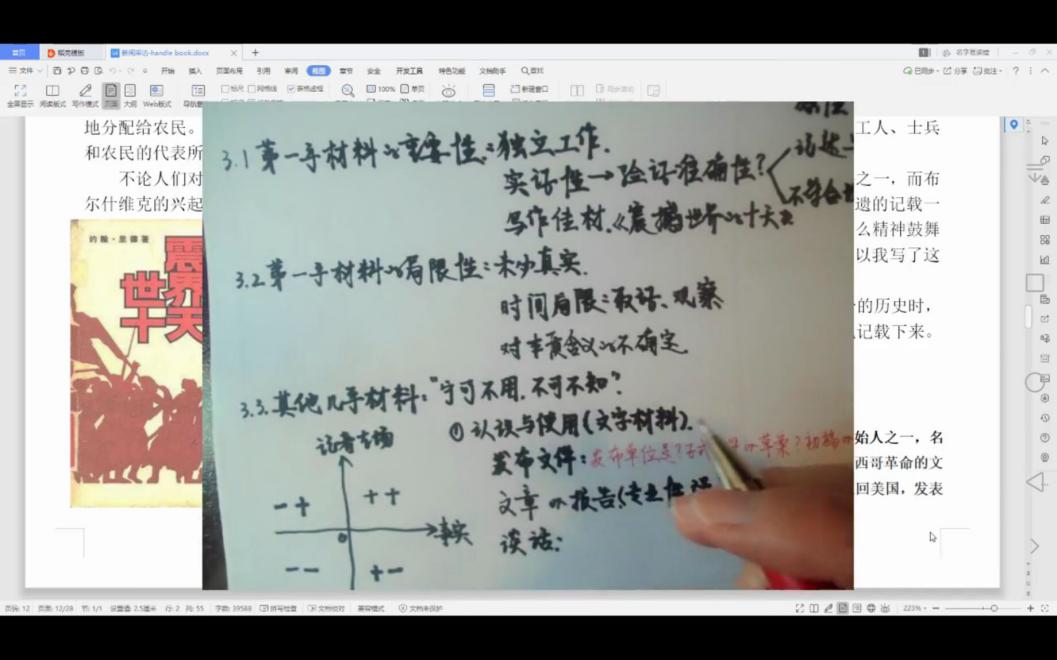 首页 稻壳模板 新闻采访-handle book.docx
文件 开始 插入 页面布局 引用 审阅 视图 章节 安全 开发工具 特色功能 文档助手 查找 已同步 分享 批注
全屏显示 阅读版式 写作模式 页面 大纲 Web版式 标尺 网格线 表格虚框 100% 单页 新建窗口 同步滚动
地分配给农民。
工人、士兵
和农民的代表所
不论人们对
之一，而布
尔什维克的兴起
遗的记载一
么精神鼓舞
以我写了这
的历史时，
记载下来。
约翰·里德著
震
世界
十天
始人之一，名
西哥革命的文
回美国，发表
3.1 第一手材料的重要性：独立工作.
实证性→验证准确性?
写作佳材.《震撼世界的十天》
不符合
3.2 第一手材料的局限性：未必真实.
时间局限：取证、观察
对本质含义的不确定.
3.3. 其他几手材料："宁可不用,不可不知"
① 认识与使用(文字材料).
发布文件：发布单位是? 草案? 初稿
文章的报告(专业性
谈话：
记者立场
- + + +
0 事实
- - + -
页码: 12 页面: 12/28 节: 1/1 设置值: 2.5厘米 行: 2 列: 55 字数: 39588 拼写检查 文档校对 兼容模式 文档未保护 223%